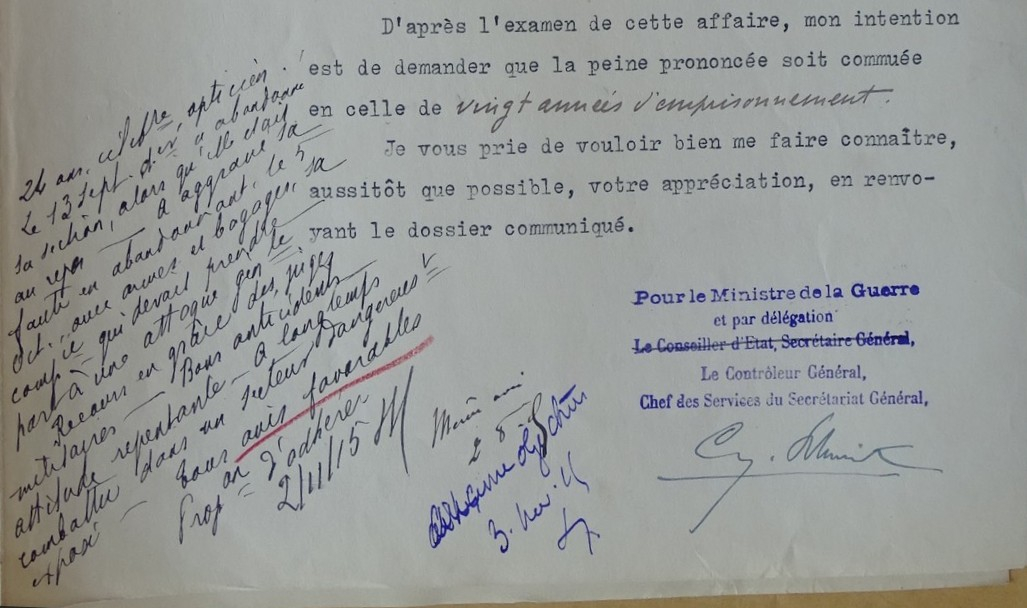 D'après l'examen de cette affaire, mon intention
est de demander que la peine prononcée soit commuée
en celle de vingt années d'emprisonnement.
Je vous prie de vouloir bien me faire connaître,
aussitôt que possible, votre appréciation, en renvo-
yant le dossier communiqué.
Pour le Ministre de la Guerre
et par délégation
Le Conseiller d'Etat, Secrétaire Général,
Le Contrôleur Général,
Chef des Services du Secrétariat Général,
24 ans, célibre, opticien.
Le 13 Sept. dr, a abandonné
sa section, alors qu'elle était
au repos — A aggravé sa
faute en abandonnant, le 5
Oct., avec armes et bagages, sa
comp ie qui devait prendre
part à une attaque gen le.
Recours en grâce des juges
militaires — Bons antécédents
attitude repentante — A longtemps
combattu dans un secteur dangereux
exposé — Tous avis favorables
Prop on d'adhérer
2/11/15
Même avis
3. Nov. 15